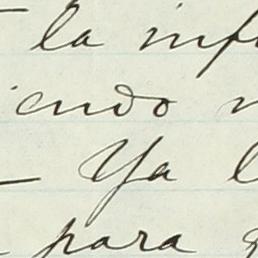 la inf
iendo
— Ya l
para